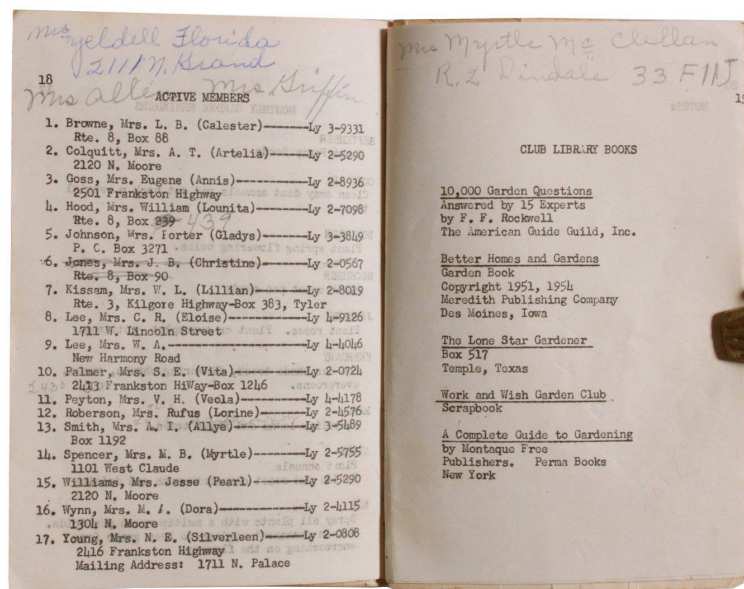 Mrs Yeldell Florida
2111 N. Grand
18
Mrs Allen Mrs Griffin
ACTIVE MEMBERS
1. Browne, Mrs. L. B. (Calester)-------Ly 3-9331
Rte. 8, Box 88
2. Colquitt, Mrs. A. T. (Artelia)------Ly 2-5290
2120 N. Moore
3. Goss, Mrs. Eugene (Annis)-----------Ly 2-8936
2501 Frankston Highway
4. Hood, Mrs. William (Lounita)--------Ly 2-7098
Rte. 8, Box 239 439
5. Johnson, Mrs. Porter (Gladys)-------Ly 3-3849
P. O. Box 3271
6. Jones, Mrs. J. B. (Christine)-------Ly 2-0567
Rte. 8, Box 90
7. Kissam, Mrs. W. L. (Lillian)--------Ly 2-8019
Rte. 3, Kilgore Highway-Box 383, Tyler
8. Lee, Mrs. C. R. (Eloise)------------Ly 4-9126
1711 W. Lincoln Street
9. Lee, Mrs. W. A.---------------------Ly 4-4046
New Harmony Road
10. Palmer, Mrs. S. E. (Vita)-----------Ly 2-0724
2413 Frankston HiWay-Box 1246
11. Peyton, Mrs. V. H. (Veola)----------Ly 4-4178
12. Roberson, Mrs. Rufus (Lorine)-------Ly 2-4576
13. Smith, Mrs. A. I. (Allye)-----------Ly 3-5489
Box 1192
14. Spencer, Mrs. M. B. (Myrtle)--------Ly 2-5755
1101 West Claude
15. Williams, Mrs. Jesse (Pearl)--------Ly 2-5290
2120 N. Moore
16. Wynn, Mrs. M. A. (Dora)-------------Ly 2-4115
1304 N. Moore
17. Young, Mrs. N. E. (Silverleen)------Ly 2-0808
2416 Frankston Highway
Mailing Address: 1711 N. Palace
Mrs Myrtle Mc Clellan
33
CLUB LIBRARY BOOKS
10,000 Garden Questions
Answered by 15 Experts
by F. F. Rockwell
The American Guide Guild, Inc.
Better Homes and Gardens
Garden Book
Copyright 1951, 1954
Meredith Publishing Company
Des Moines, Iowa
The Lone Star Gardener
Box 517
Temple, Texas
Work and Wish Garden Club
Scrapbook
A Complete Guide to Gardening
by Montaque Free
Publishers. Perma Books
New York